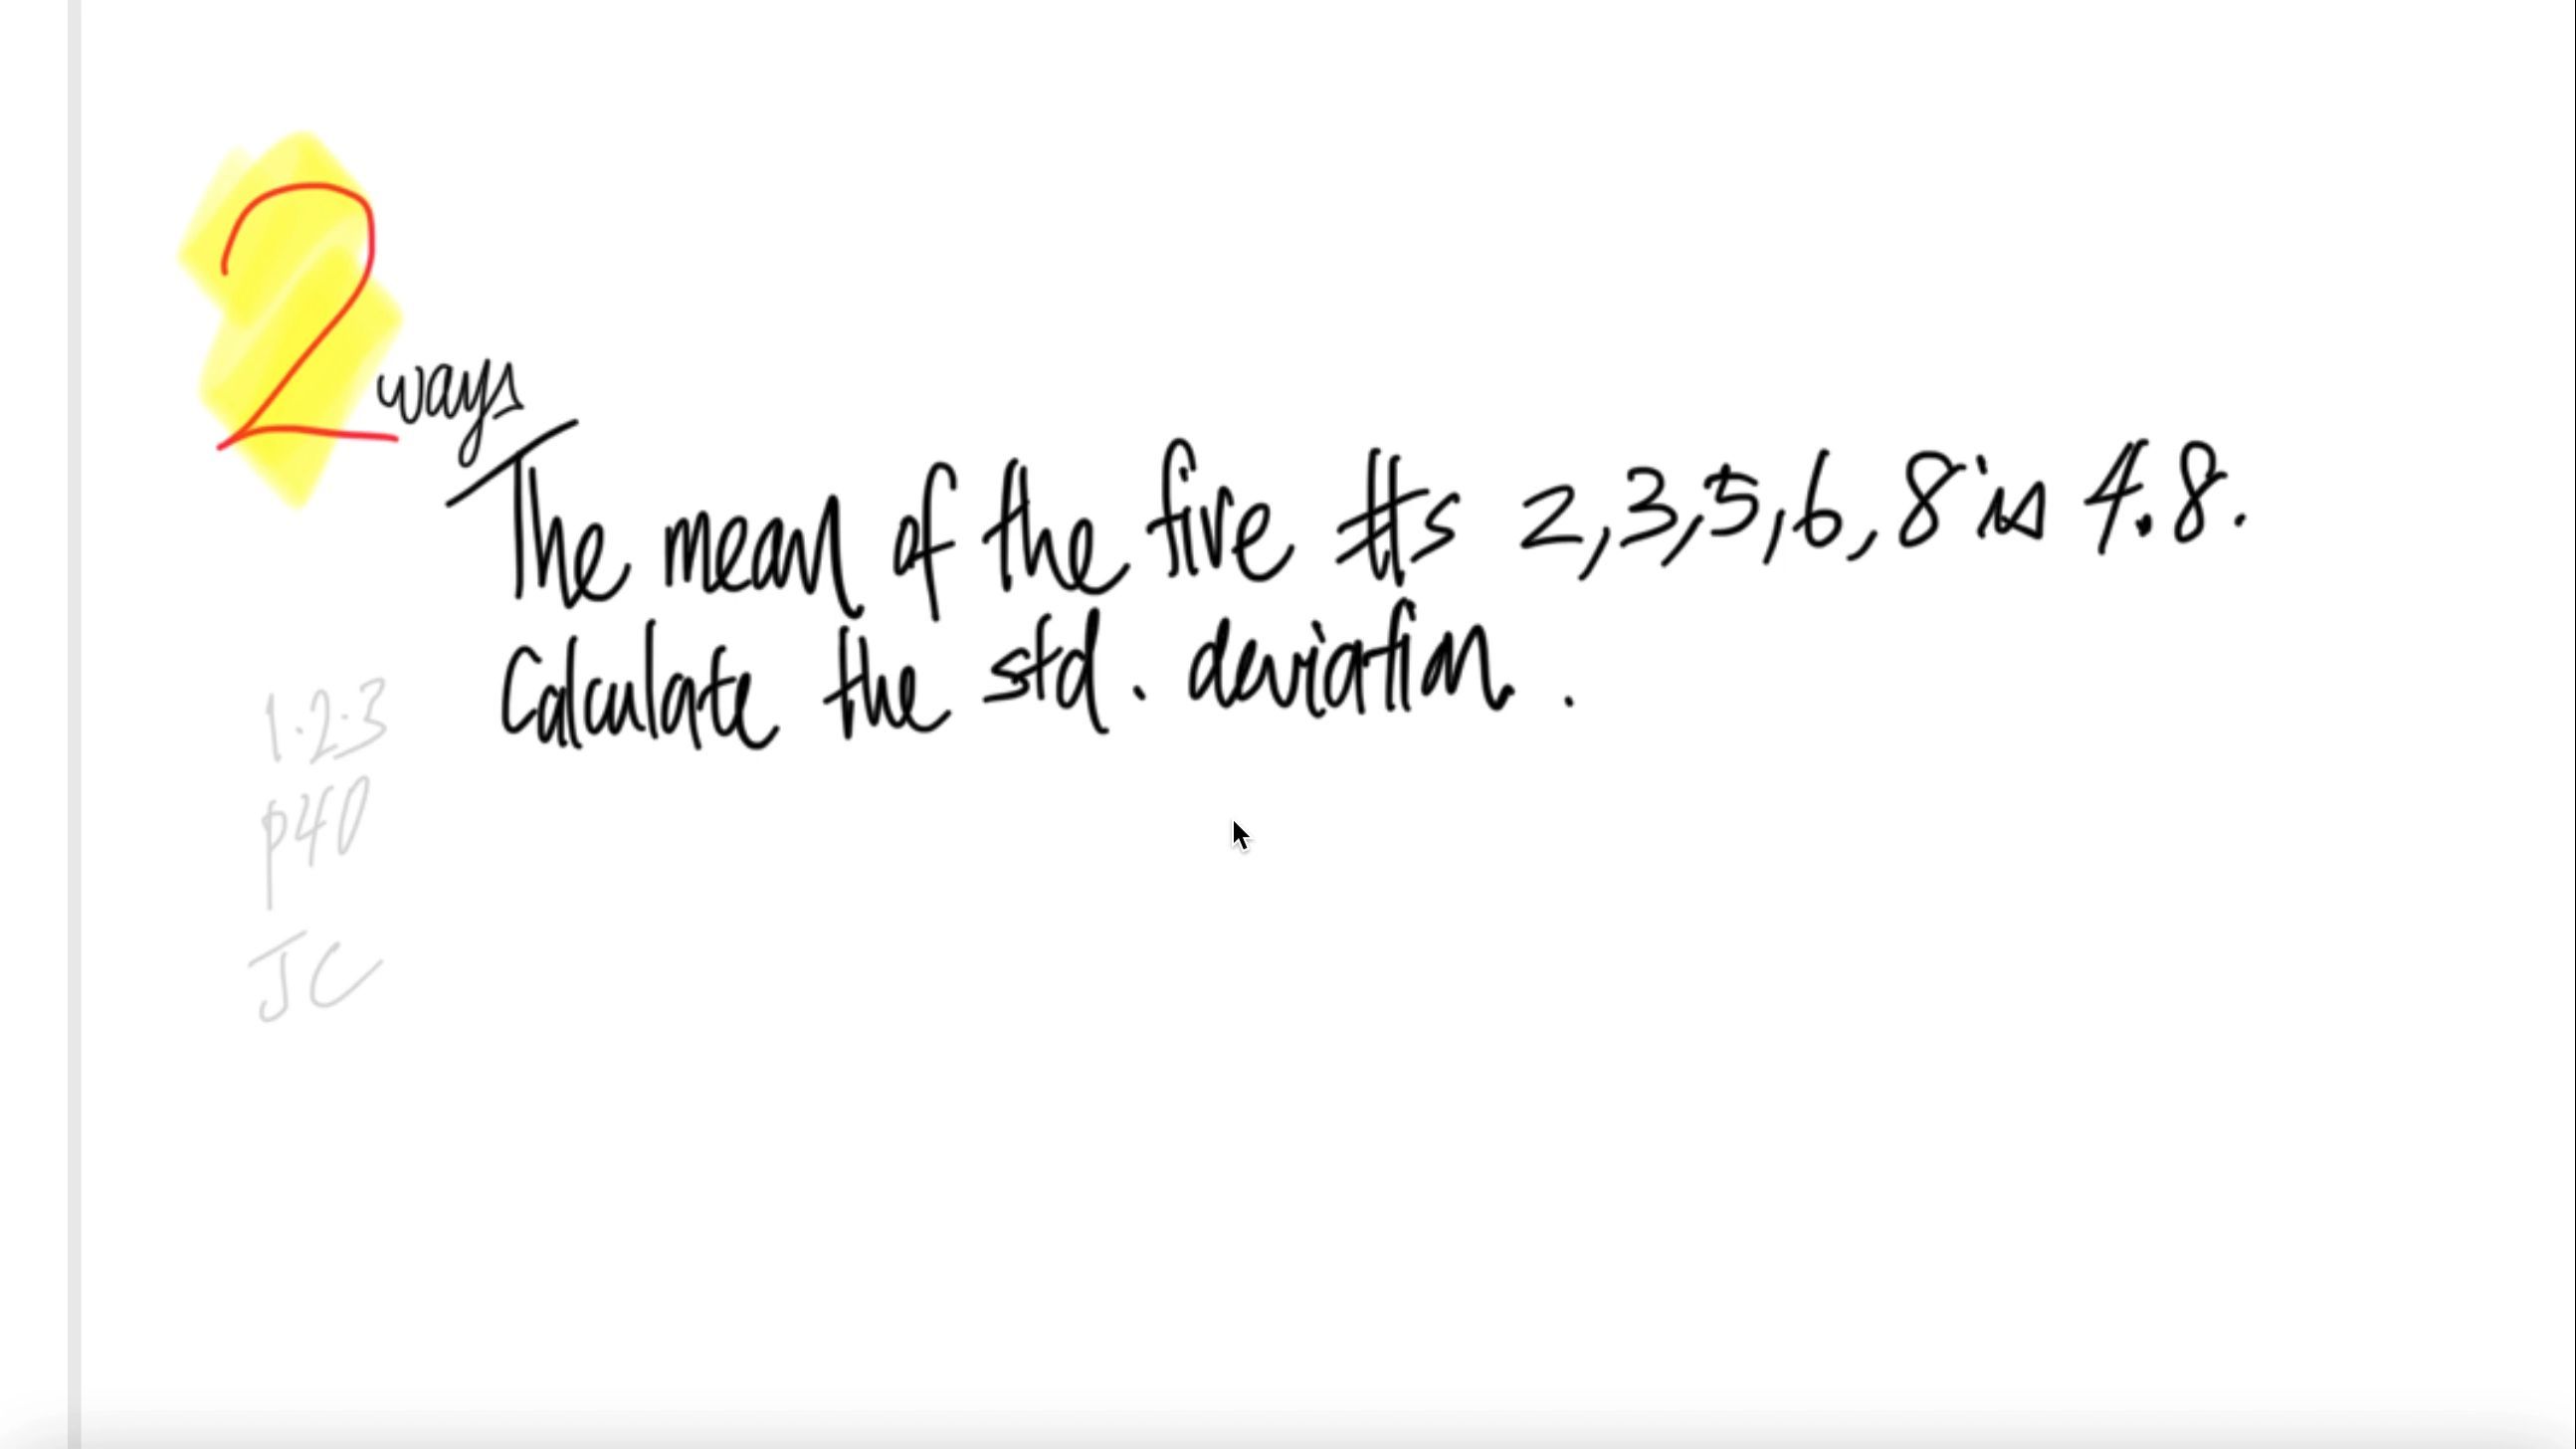 2 ways
The mean of the five #s 2,3,5,6,8 is 4.8.
Calculate the std. deviation.
1.2.3
p40
JC